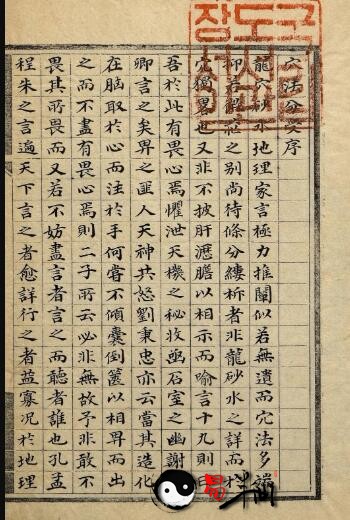 穴法分序
龍穴砂水地理家言極力推闡似若無遺而穴法多端
抑若之別尚待條分縷析者非龍砂水之詳而於
穴獨畧也又非不披肝瀝膽以相示而喻言十九則曰
吾於此有畏心焉懼泄天機之秘收函石室之幽謝
卿言之矣畀之匪人天神共怒劉秉忠亦云當其造化
在腦取於心而注於手何嘗不傾囊倒篋以相畀而出
之而不盡有畏心焉則二子所云必非無故予非敢不
畏其所畏而又若不妨盡言者言之而聽者誰也孔孟
程朱之言遍天下言之者愈詳行之者益寡况於地理
易